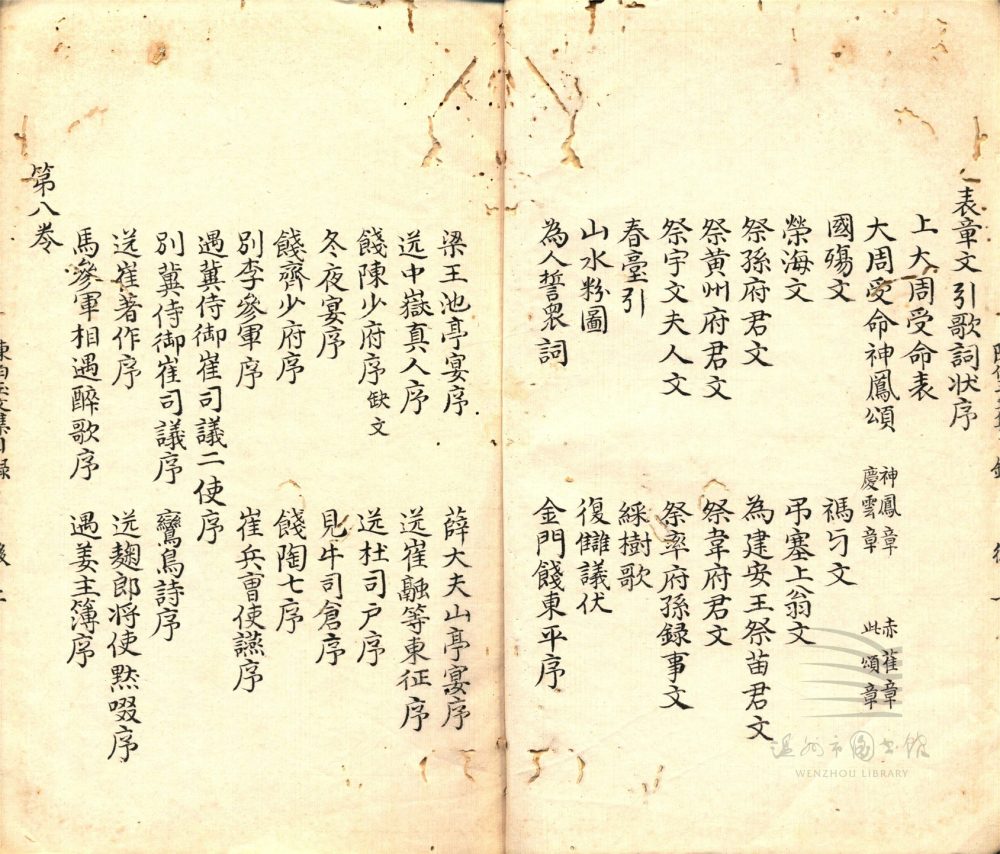 表章文引歌詞状序
上大周受命表
大周受命神鳳頌 神鳳章 慶雲章 赤雀章 此頌章
國殤文 禡牙文
禜海文 弔塞上翁文
祭孫府君文 為建安王祭苗君文
祭黃州府君文 祭韋府君文
祭宇文夫人文 祭率府孫録事文
春臺引 綵樹歌
山水粉圖 復讎議伏
為人誓衆詞 金門餞東平序
梁王池亭宴序 薛大夫山亭宴序
送中嶽真人序 送崔融等東征序
餞陳少府序 缺文 送杜司户序
冬夜宴序 見牛司倉序
餞齊少府序 餞陶七序
別李參軍序 崔兵曹使讌序
遇冀侍御崔司議二使序
別冀侍御崔司議序 鸞鳥詩序
送崔著作序 送麴郎将使默啜序
馬參軍相遇醉歌序 遇姜主簿序
第八卷
温州市图书馆
WENZHOU LIBRARY